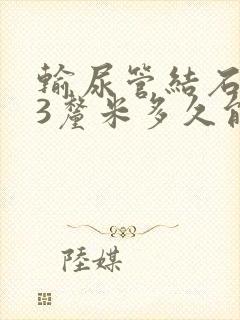 輸尿管結石
3釐米多久能
陸媒